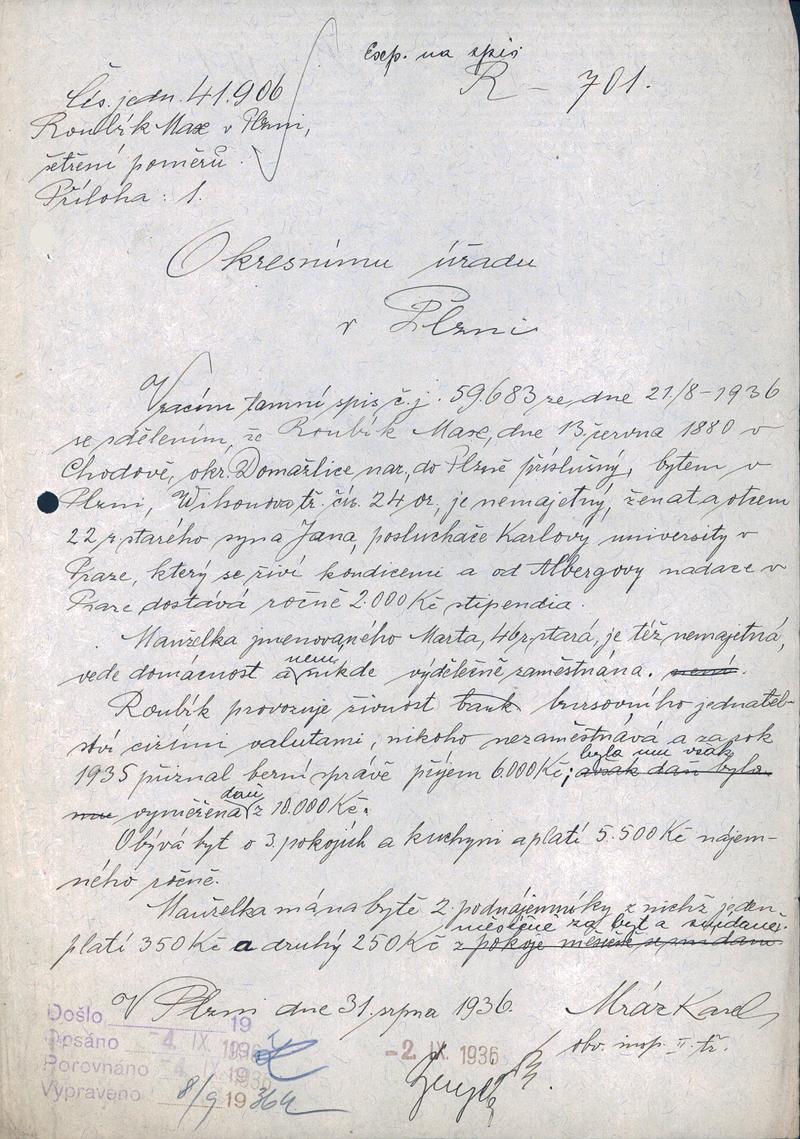 Exp. na spis
R – 701.
Čís. jedn. 41.906
Roubík Max v Plzni,
šetření poměrů.
Příloha: 1.
Okresnímu úřadu
v Plzni
Vracím tamní spis č. j. 59.683 ze dne 21/8-1936
se sdělením, že Roubík Max, dne 13. června 1880 v
Chodově, okr. Domažlice nar., do Plzně příslušný, bytem v
Plzni, Wilsonova tř. čís. 24 or., je nemajetný, ženat a otcem
22 r. starého syna Jana, posluchače Karlovy university v
Praze, který se živí kondicemi a od Albergovy nadace v
Praze dostává ročně 2.000 Kč stipendia.
Manželka jmenovaného Marta, 46 r. stará, je též nemajetná,
vede domácnost a není nikde výdělečně zaměstnána. není.
Roubík provozuje živnost bank bursovního jednatel-
ství cizími valutami, nikoho nezaměstnává a za rok
1935 přiznal berní správě příjem 6.000 Kč; avšak daň byla
byla mu však
mu vyměřena daň z 10.000 Kč.
Obývá byt o 3 pokojích a kuchyni a platí 5.500 Kč nájem-
ného ročně.
Manželka má na bytě 2 podnájemníky z nichž jeden
měsíčně za byt a snídani.
platí 350 Kč a druhý 250 Kč z pokoje měsíčně se snídaní.
V Plzni dne 31. srpna 1936.
Mráz Karel
obv. insp. II. tř.
Došlo 19
Opsáno -4. IX. 1936
Porovnáno -4. IX. 1936
Vypraveno 8/9 1936
-2. IX. 1936